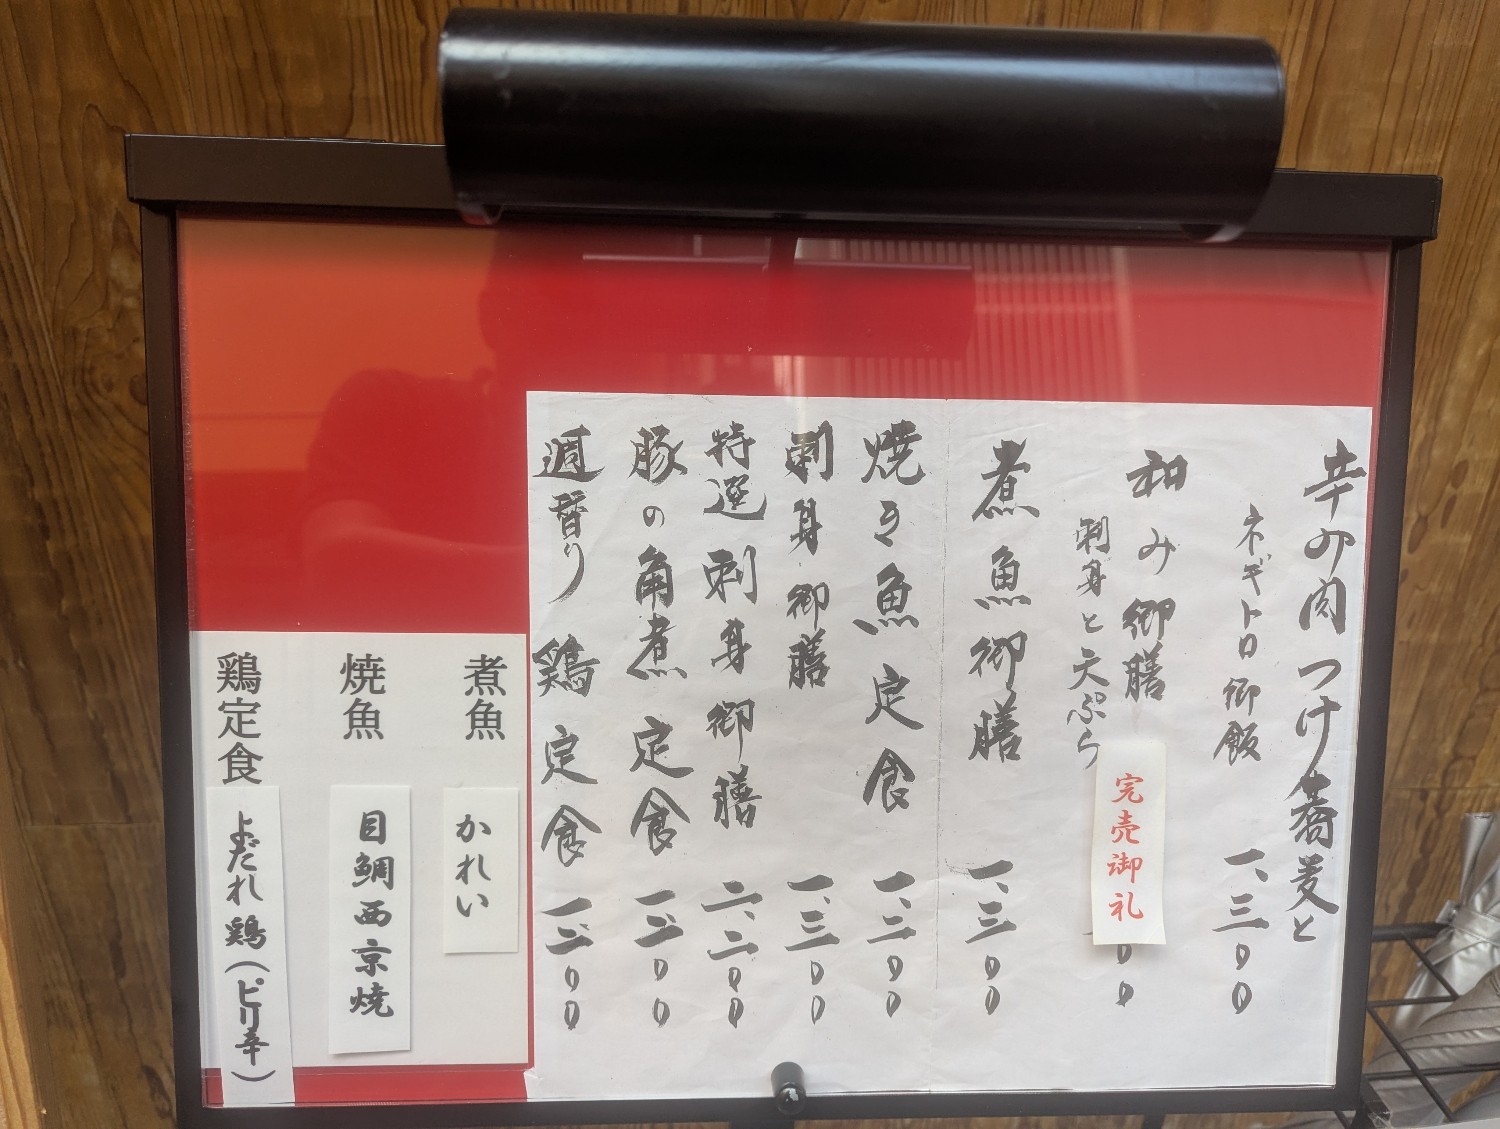 辛の肉つけ蕎麦と
ネギトロ御飯 一、三〇〇
和み御膳 〇〇
完売御礼
刺身と天ぷら
煮魚御膳 一、三〇〇
焼き魚定食 一、三〇〇
刺身御膳 一、三〇〇
特選刺身御膳 二、二〇〇
豚の角煮定食 一、二〇〇
週替り 鶏定食 一、二〇〇
煮魚 かれい
焼魚 目鯛西京焼
鶏定食 よだれ鶏(ピリ辛)